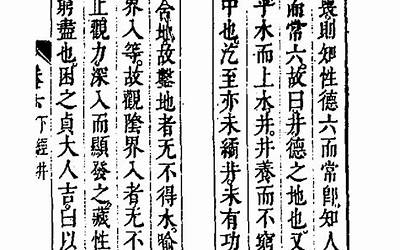 喪則知性德六而常卽知人
而常六故曰井德之地也又
乎水而上水井井養而不窮
中也汔至亦未繘井未有功
含地故鑿地者无不得水喻
界入等故觀陰界入者无不
止觀力深入而顯發之藏性
窮盡也困之貞大人吉曰以
卷六 下經井